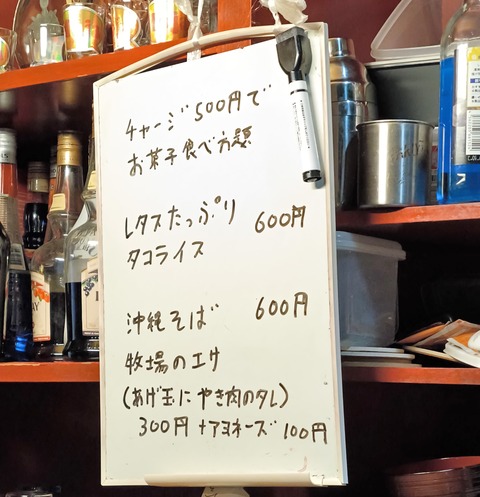 チャージ500円で
お菓子食べ方題
レタスたっぷり 600円
タコライス
沖縄そば 600円
牧場のエサ
(あげ玉に やき肉のタレ)
300円 +マヨネーズ 100円